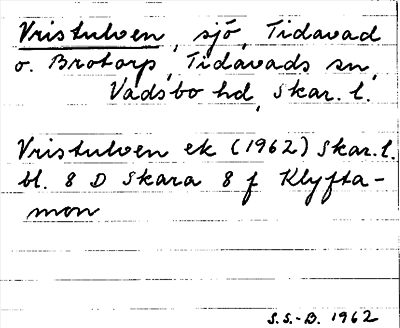 Vristulven, sjö, Tidavad
o. Brotorp, Tidavads sn,
Vadsbo hd, Skar. l.
Vristulven ek (1962) Skar. l.
bl. 8 D Skara 8 f Klyfta-
mon
S.S.-B. 1962